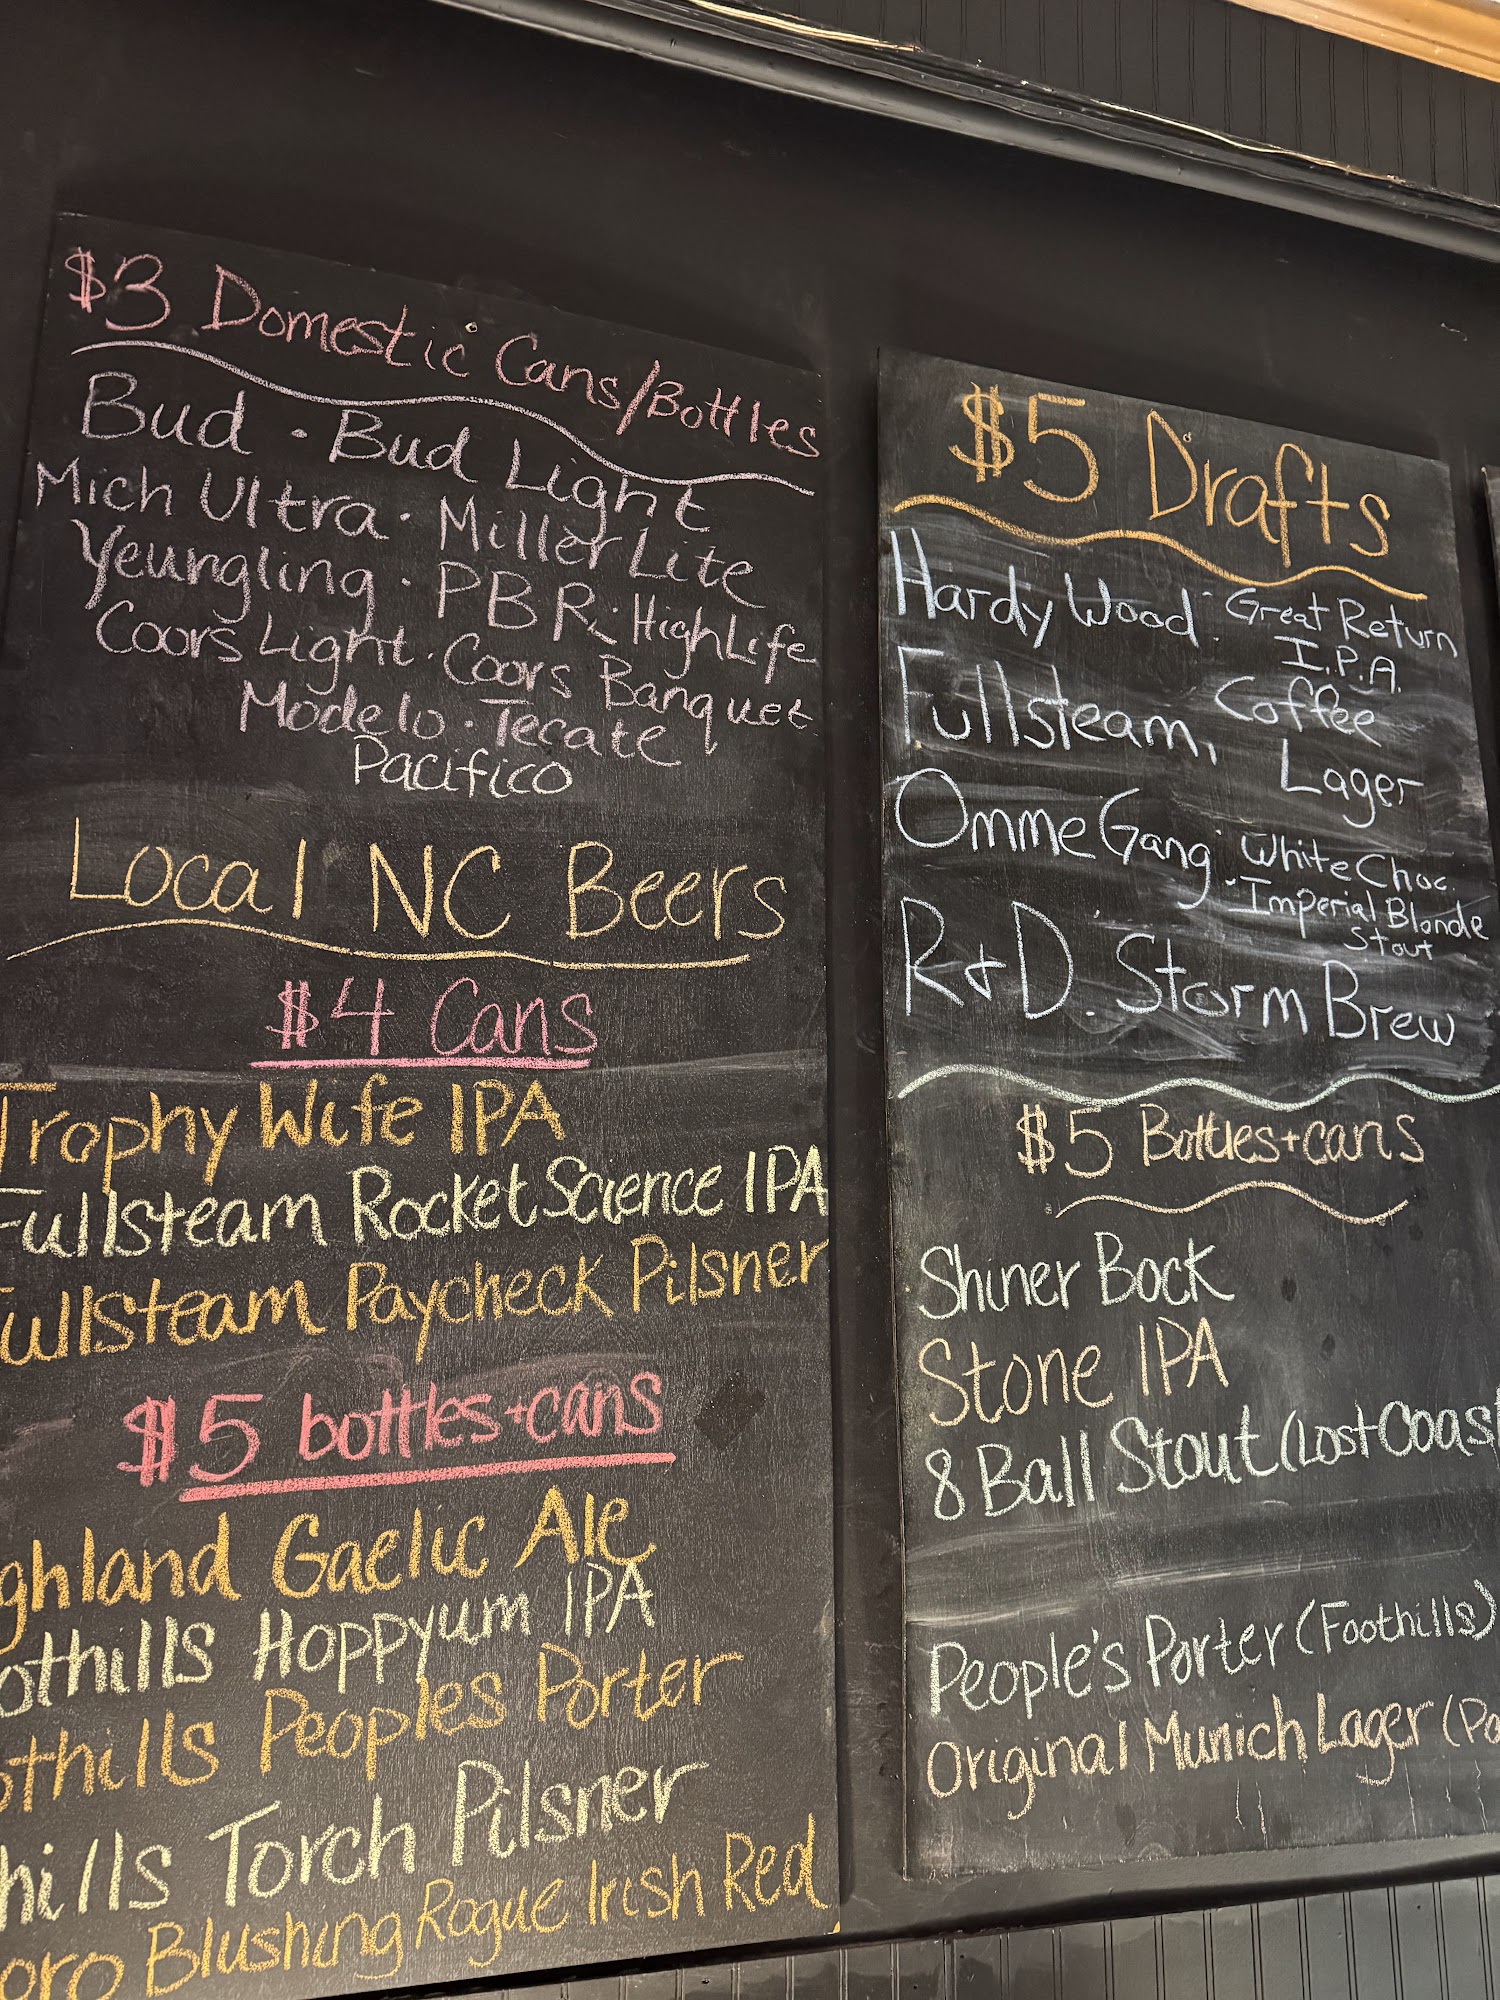 $3 Domestic Cans/Bottles
Bud · Bud Light
Mich Ultra · Miller Lite
Yeungling · PBR · High Life
Coors Light · Coors Banquet
Modelo · Tecate
Pacifico
Local NC Beers
$4 Cans
Trophy Wife IPA
Fullsteam Rocket Science IPA
Fullsteam Paycheck Pilsner
$5 bottles + cans
ghland Gaelic Ale
othills Hoppyum IPA
othills Peoples Porter
hills Torch Pilsner
oro Blushing Rogue Irish Red
$5 Drafts
Hardy Wood · Great Return
I.P.A.
Fullsteam, Coffee
Lager
OmmeGang · White Choc.
· Imperial Blonde
Stout
R+D. Storm Brew
$5 Bottles + cans
Shiner Bock
Stone IPA
8 Ball Stout (Lost Coast
People's Porter (Foothills)
Original Munich Lager (Po